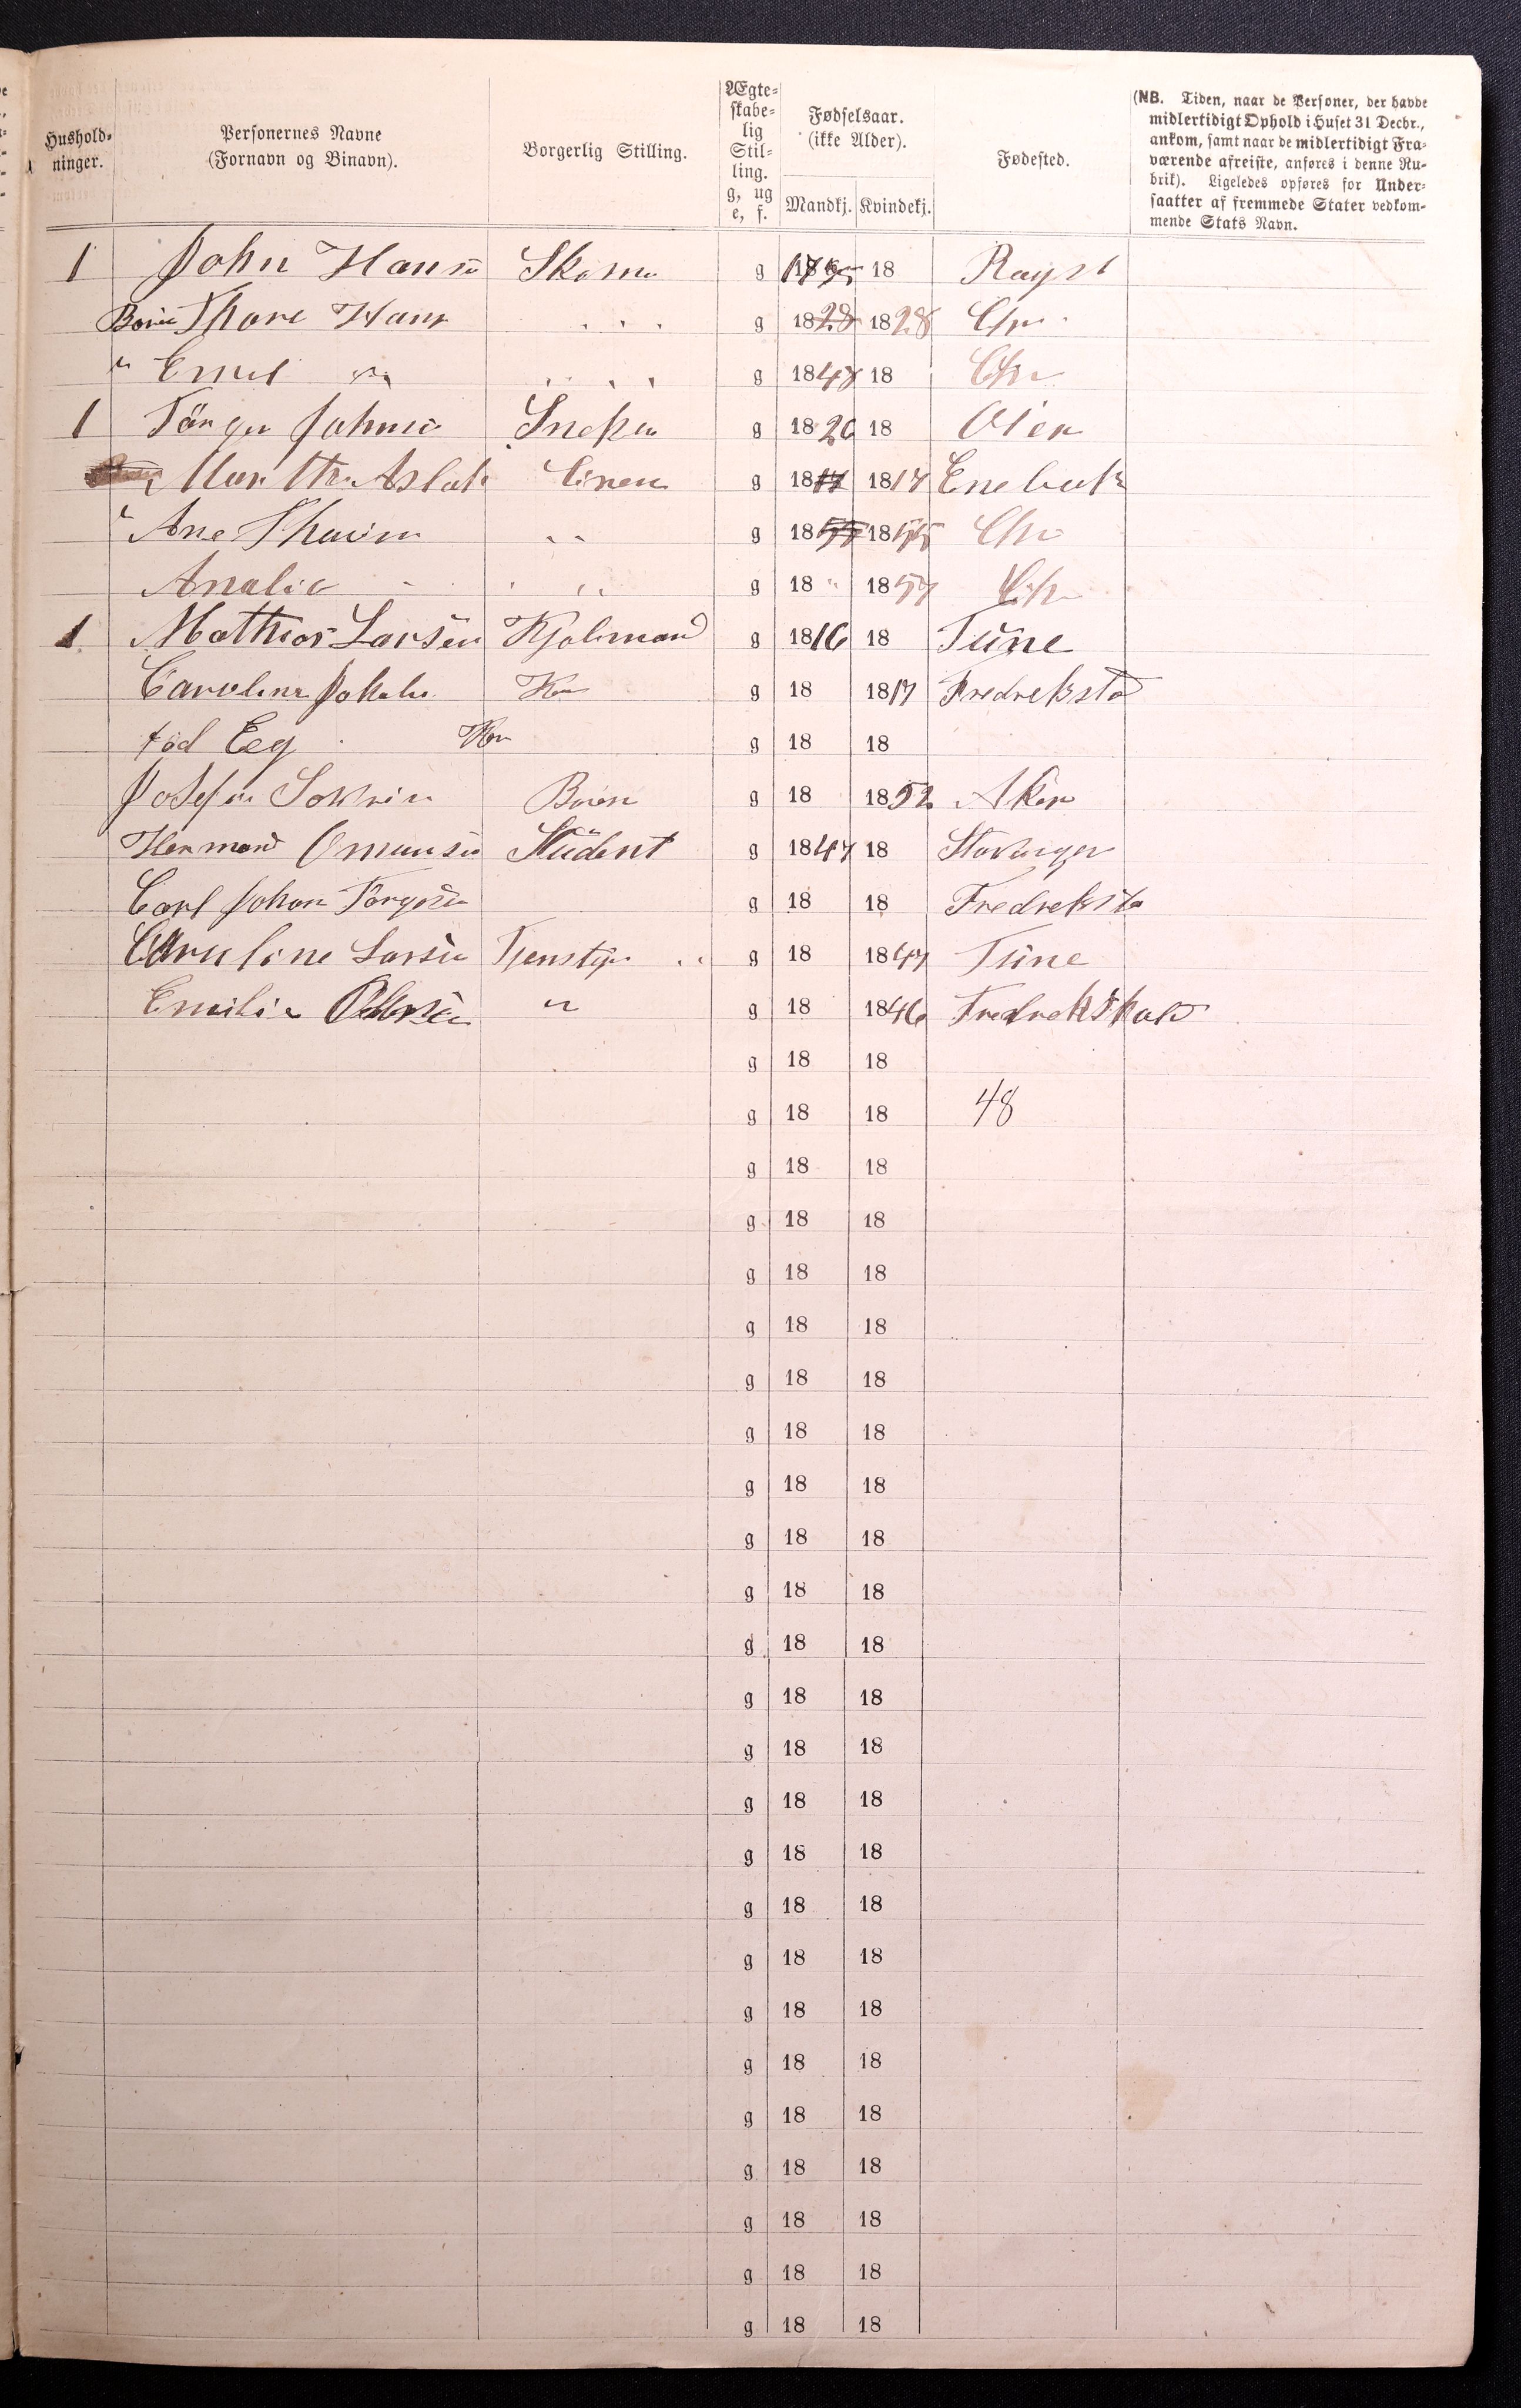 Hushold-
ninger.
Personernes Navne
(Fornavn og Binavn).
Borgerlig Stilling.
Ægte-
skabe-
lig
Stil-
ling.
g, ug
e, f.
Fødselsaar.
(ikke Alder).
Mandkj. Kvindekj.
Fødested.
(NB. Tiden, naar de Personer, der havde
midlertidigt Ophold i Huset 31 Decbr.,
ankom, samt naar de midlertidigt Fra-
værende afreiste, anføres i denne Ru-
brik). Ligeledes opføres for Under-
saatter af fremmede Stater vedkom-
mende Stats Navn.
1 John Hans Skom g 18 Rayst
Thore Hans g 1828 1828 Chr
" Emil " g 1848 18 Chr
1 Snek g 1820 18 Oier
Marthe Aslak g 1817 1817 Enebak
" Ane g 1855 1855 Chr
Analie g 18 " 1857 Chr
1 Mathias Larsen g 1816 18 Tune
Caroline Jokobs Kon g 18 1817 Fredreksta
fød Eeg Kon g 18 18
g 18 1852 Aker
Herman Omunsen Student g 1847 18 Stavanger
Carl Johan Törgesen g 18 18 Fredreksta
Caruline Larsen g 18 1847 Tune
Emilie " g 18 1846 Fredrekshald
g 18 18
g 18 18 48
g 18 18
g 18 18
g 18 18
g 18 18
g 18 18
g 18 18
g 18 18
g 18 18
g 18 18
g 18 18
g 18 18
g 18 18
g 18 18
g 18 18
g 18 18
g 18 18
g 18 18
g 18 18
g 18 18
g 18 18
g 18 18
g 18 18
g 18 18